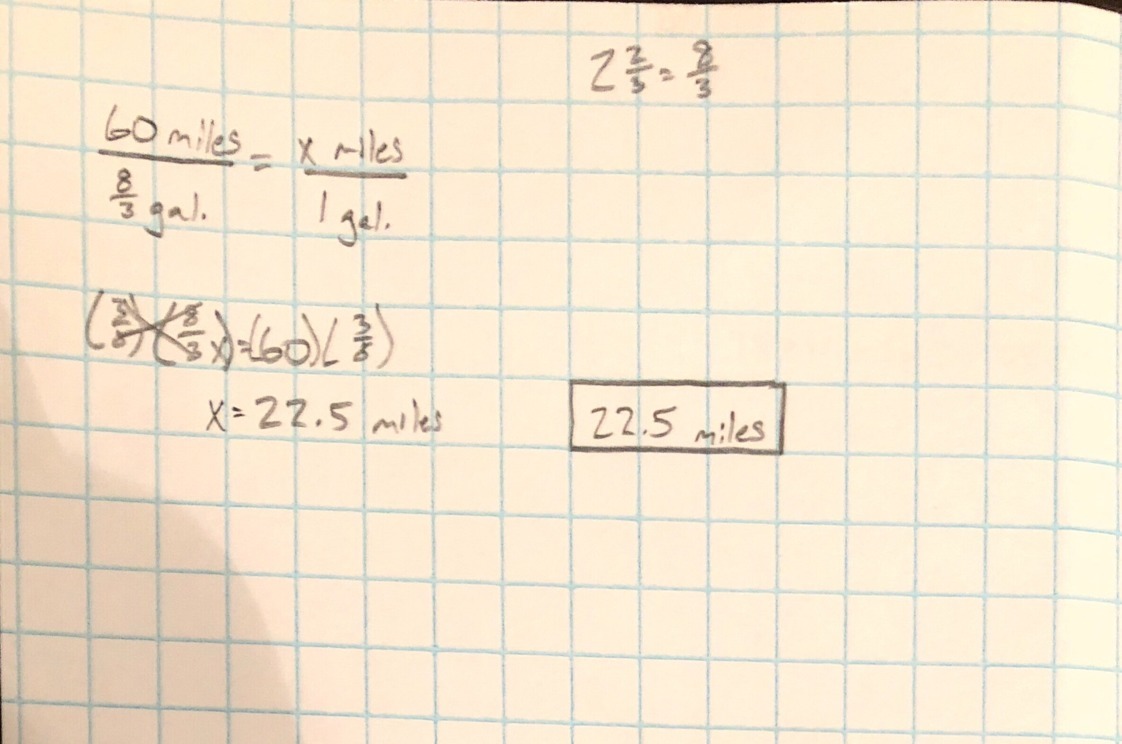 2 2/3 = 8/3
60 miles / 8/3 gal. = x miles / 1 gal.
(3/8)(8/3 x) = (60)(3/8)
x = 22.5 miles
22.5 miles